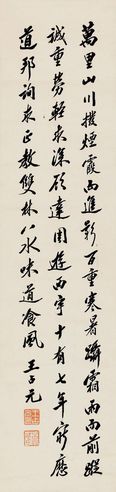 萬里山川撥煙霞而進影百重寒暑躡霜雨而前蹤
誠重勞輕求深願達周遊西宇十有七年窮歷
道邦詢求正教雙林八水味道飡風
王 元